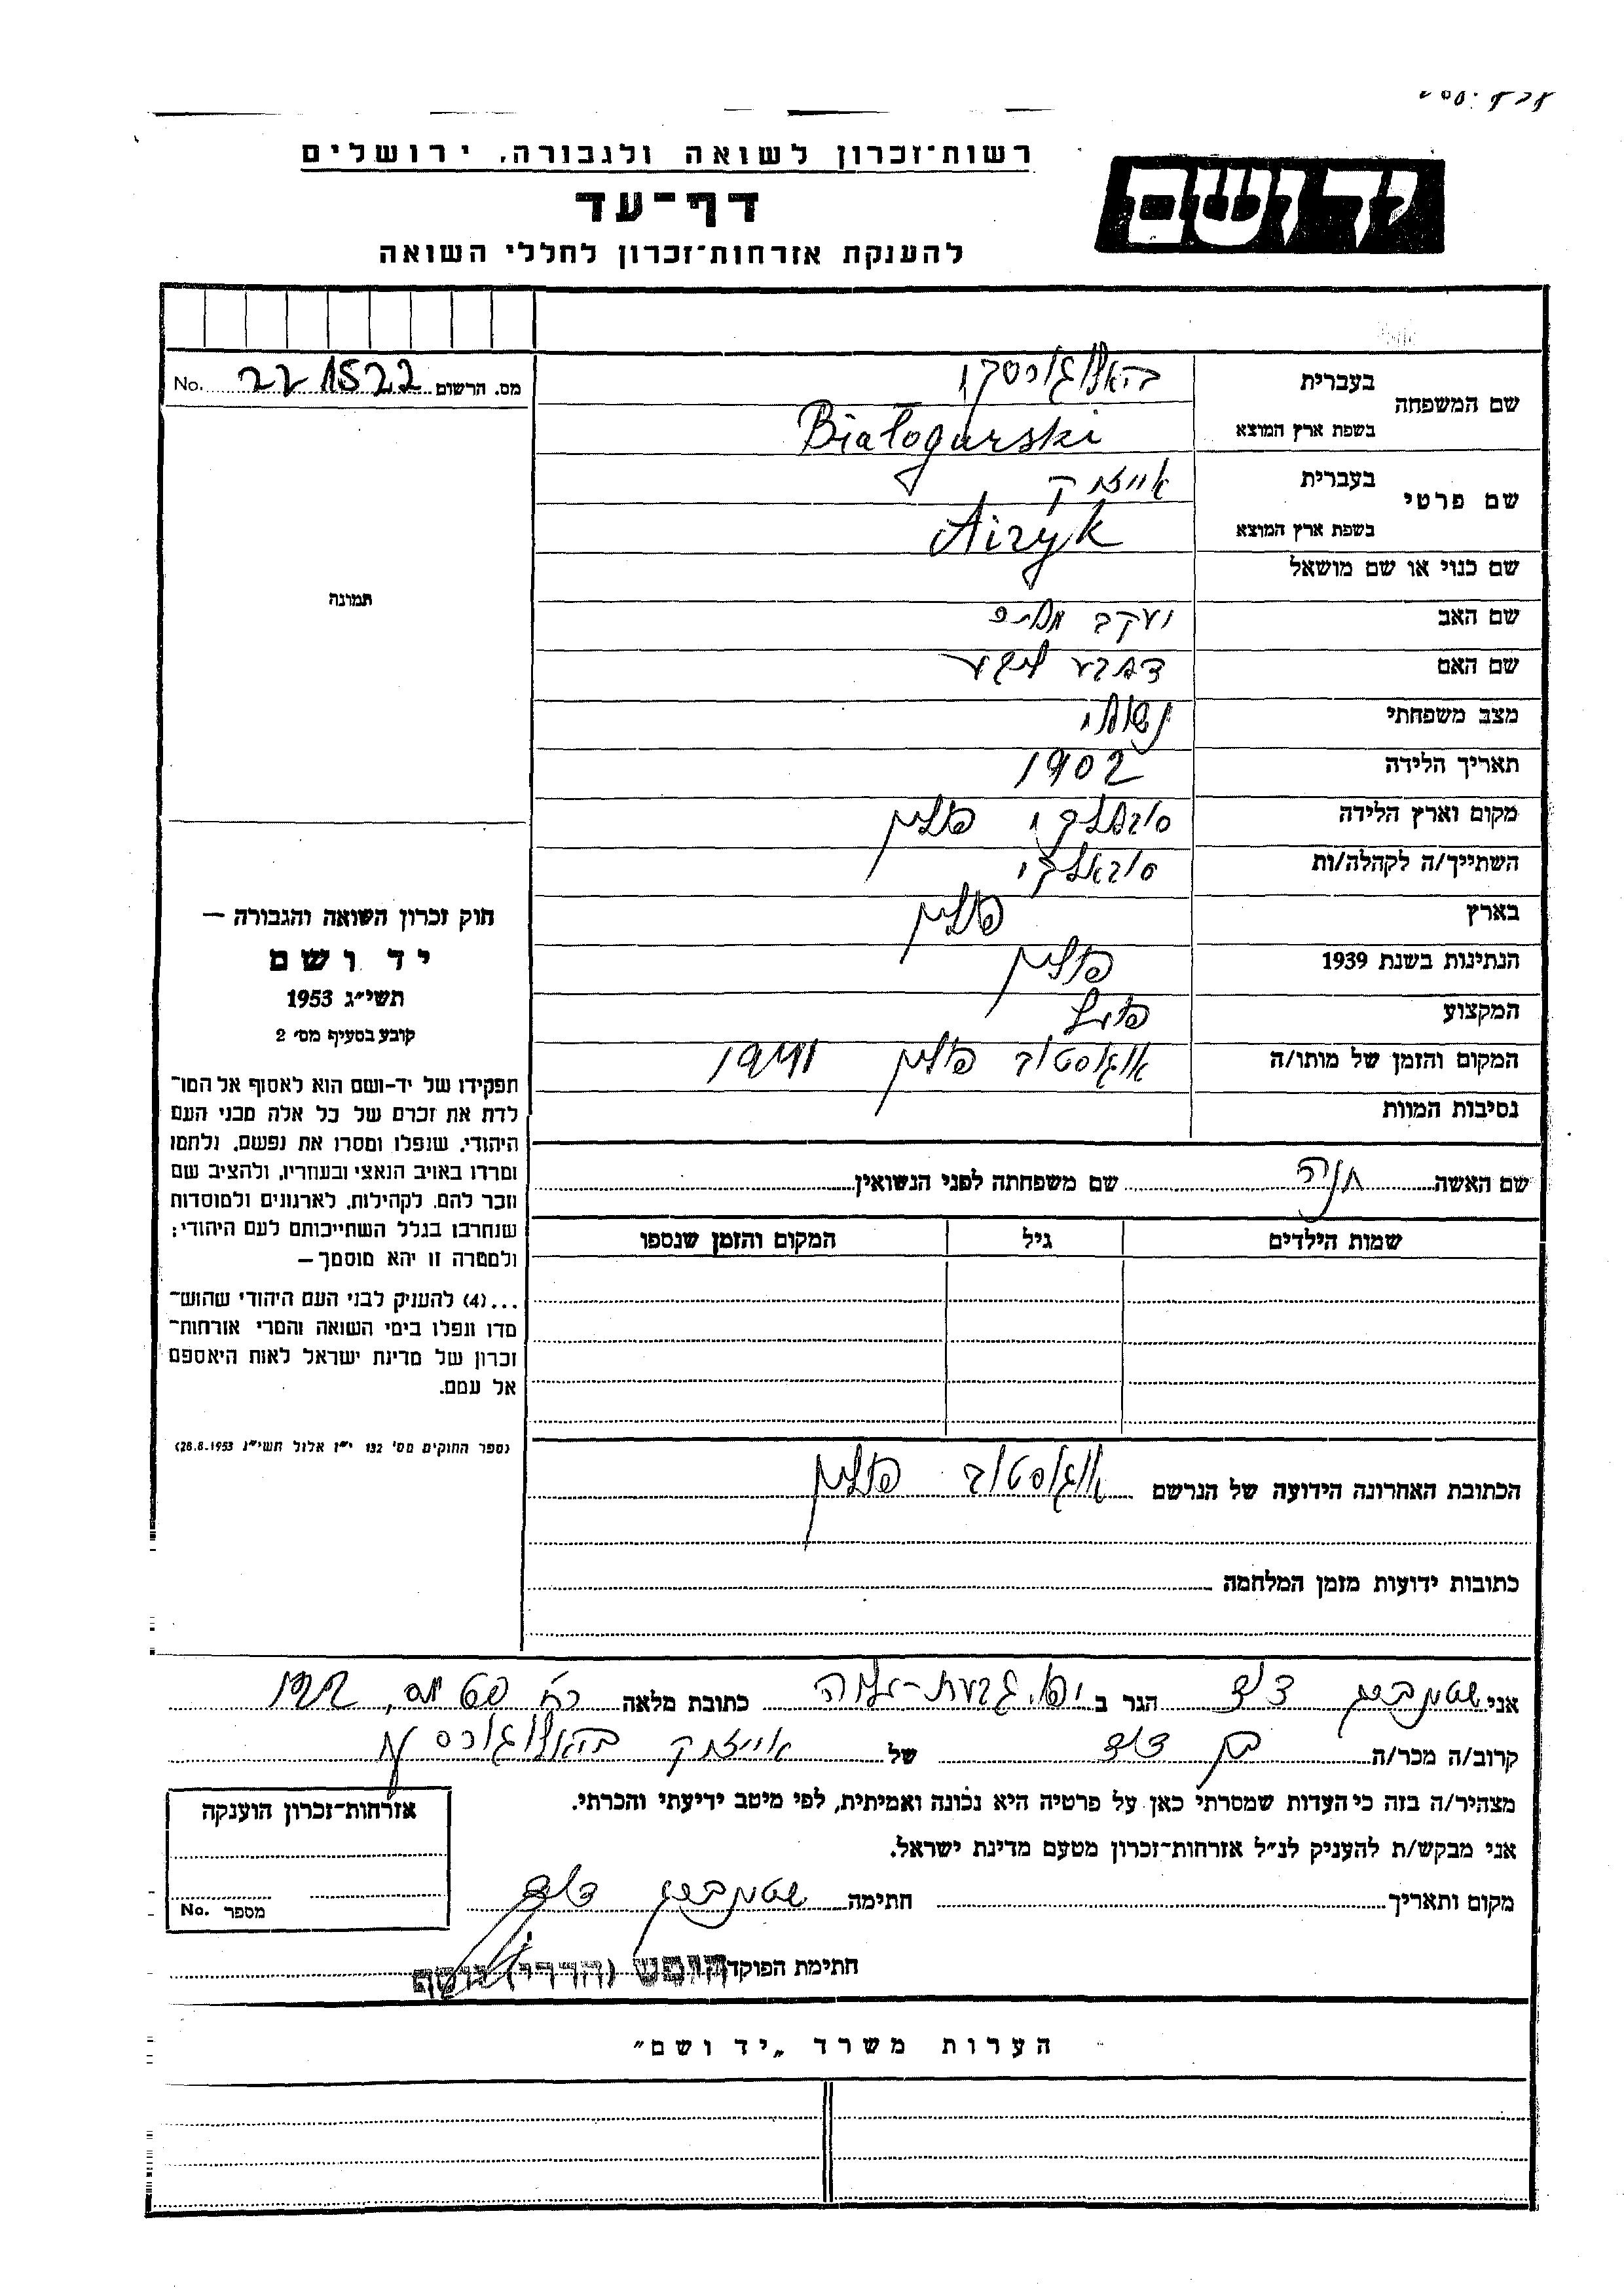 רשות־זכרון לשואה ולגבורה, ירושלים
יד ושם
דף־עד
להענקת אזרחות־זכרון לחללי השואה
מס. הרשום 221522 No.
שם המשפחה
בעברית
בשפת ארץ המוצא Białogurski
שם פרטי
בעברית אייזיק
בשפת ארץ המוצא Aizyk
שם כנוי או שם מושאל
שם האב יעקב
שם האם
מצב משפחתי נשוי
תאריך הלידה 1902
מקום וארץ הלידה סובאלקי פולין
השתייך/ה לקהלה/ות סובאלקי
בארץ פולין
הנתינות בשנת 1939 פולין
המקצוע פועל
המקום והזמן של מותו/ה אוגוסטוב פולין 1941
נסיבות המוות
תמונה
חוק זכרון השואה והגבורה —
יד ושם
תשי״ג 1953
קובע בסעיף מס׳ 2
תפקידו של יד-ושם הוא לאסוף אל המו־
לדת את זכרם של כל אלה מבני העם
היהודי, שנפלו ומסרו את נפשם, נלחמו
ומרדו באויב הנאצי ובעוזריו, ולהציב שם
וזכר להם, לקהילות, לארגונים ולמוסדות
שנחרבו בגלל השתייכותם לעם היהודי;
ולמטרה זו יהא מוסמך —
...(4) להעניק לבני העם היהודי שהוש־
מדו ונפלו בימי השואה והמרי אזרחות־
זכרון של מדינת ישראל לאות היאספם
אל עמם.
(ספר החוקים מס׳ 132 י״ז אלול תשי״ג 28.8.1953)
שם האשה חנה שם משפחתה לפני הנשואין
שמות הילדים גיל המקום והזמן שנספו
הכתובת האחרונה הידועה של הנרשם אוגוסטוב פולין
כתובות ידועות מזמן המלחמה
אני שטרנברג דוד הגר ב כתובת מלאה
קרוב/ה מכר/ה בן דוד של אייזיק
מצהיר/ה בזה כי העדות שמסרתי כאן על פרטיה היא נכונה ואמיתית, לפי מיטב ידיעתי והכרתי.
אני מבקש/ת להעניק לנ״ל אזרחות־זכרון מטעם מדינת ישראל.
מקום ותאריך חתימה שטרנברג דוד
חתימת הפוקד חופש (הררי) יוסף
אזרחות־זכרון הוענקה
מספר No.
הערות משרד „יד ושם״